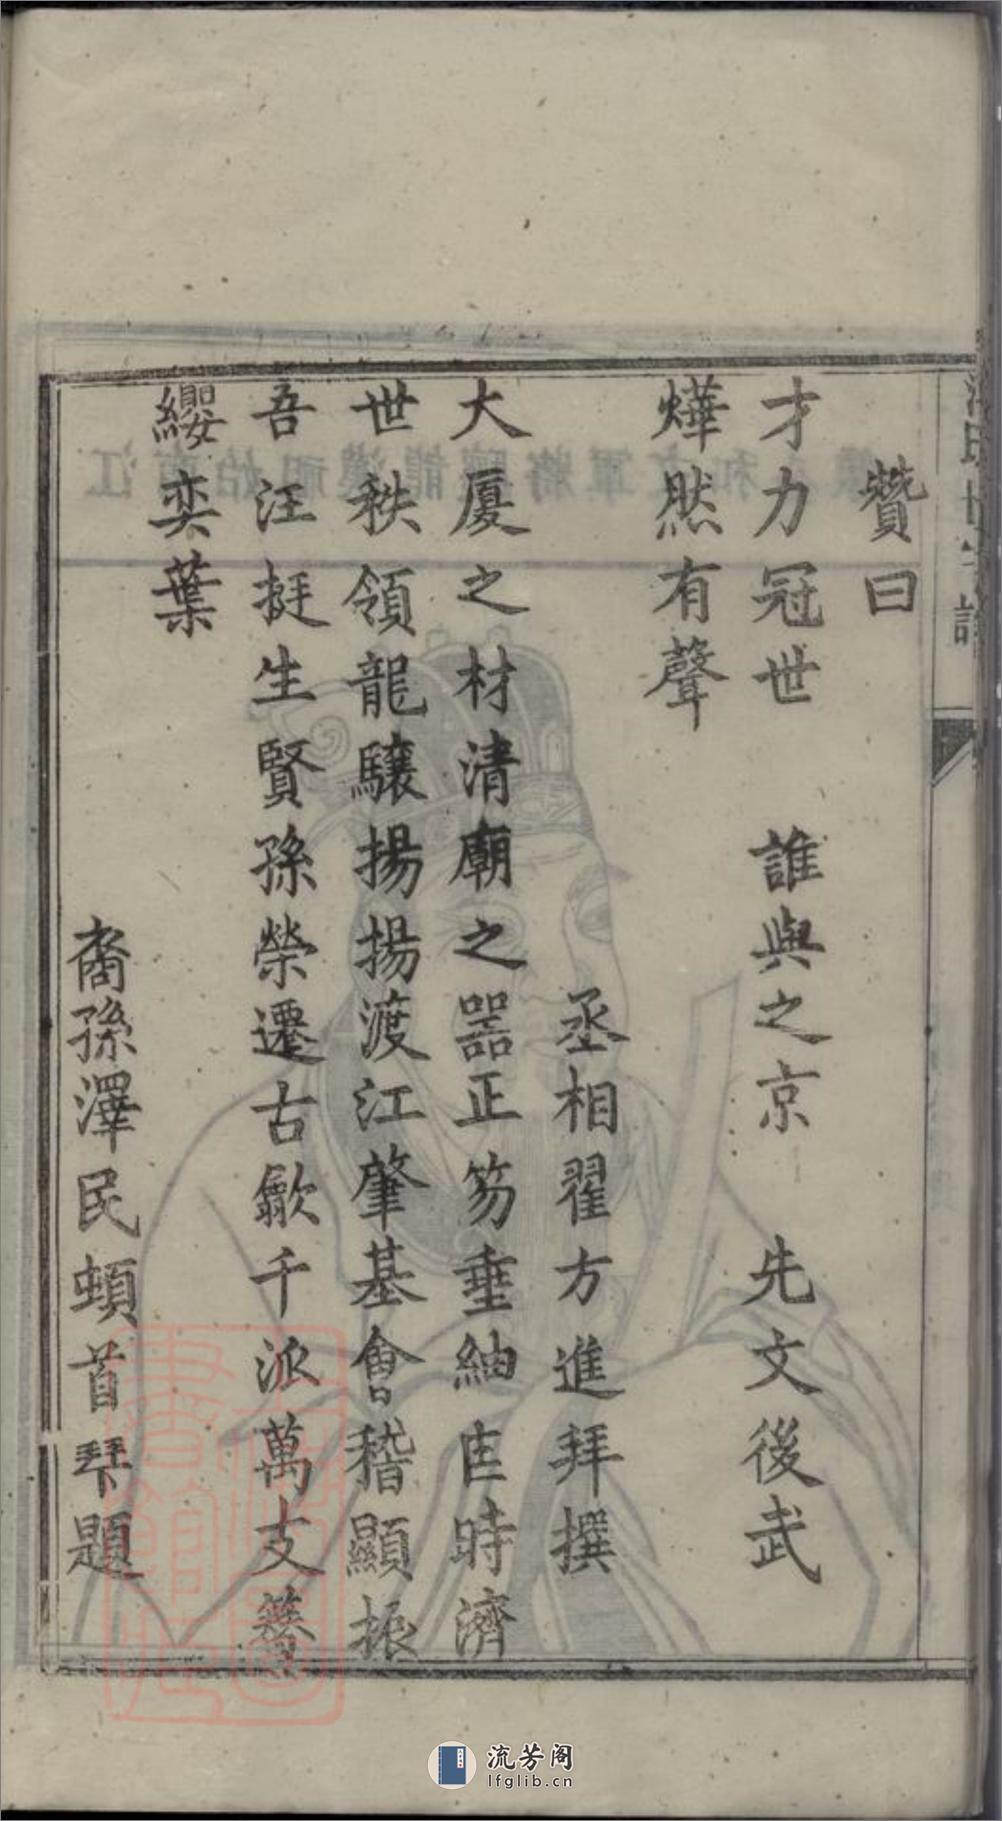 贊曰
才力冠世　誰與之京　先文後武
燁然有聲
丞相翟方進拜撰
大廈之材清廟之器正笏垂紳匡時濟
世秩領龍驤揚揚渡江肇基會稽顯振
吾汪挺生賢孫榮遷古歙千派萬支簪
纓奕葉
裔孫澤民頓首拜題
流芳阁
lfglib.cn